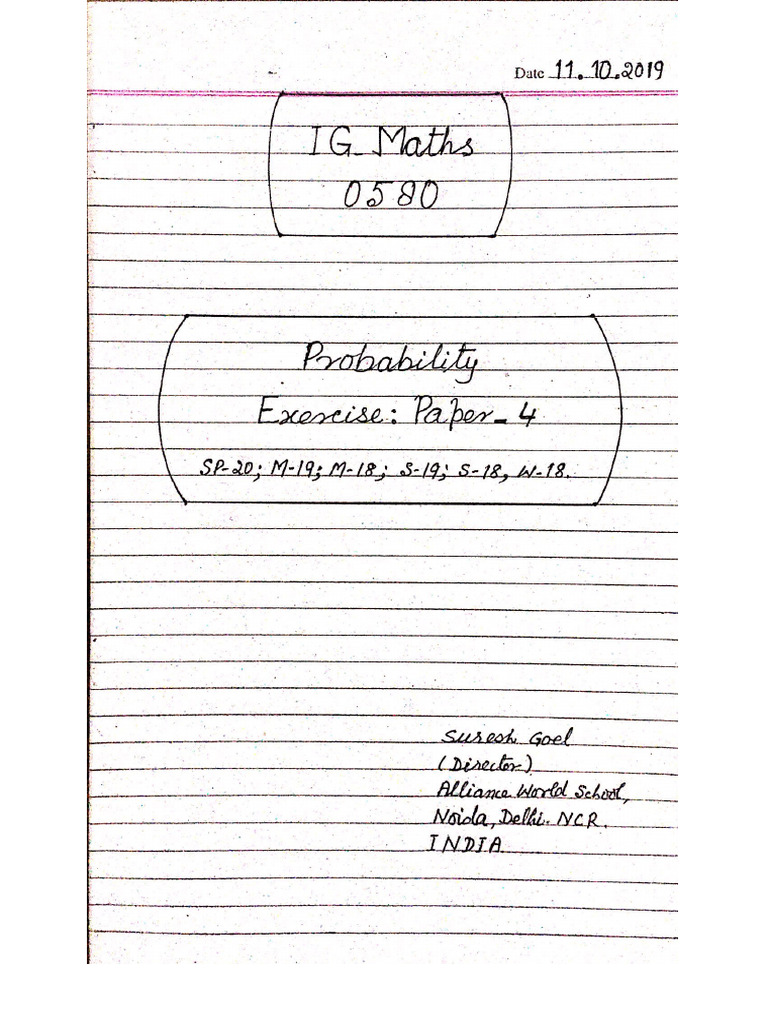 Date 11.10.2019
IG Maths
0580
Probability
Exercise: Paper-4
SP-20; M-19; M-18; S-19; S-18, W-18.
Suresh Goel
(Director)
Alliance World School,
Noida, Delhi-NCR.
INDIA